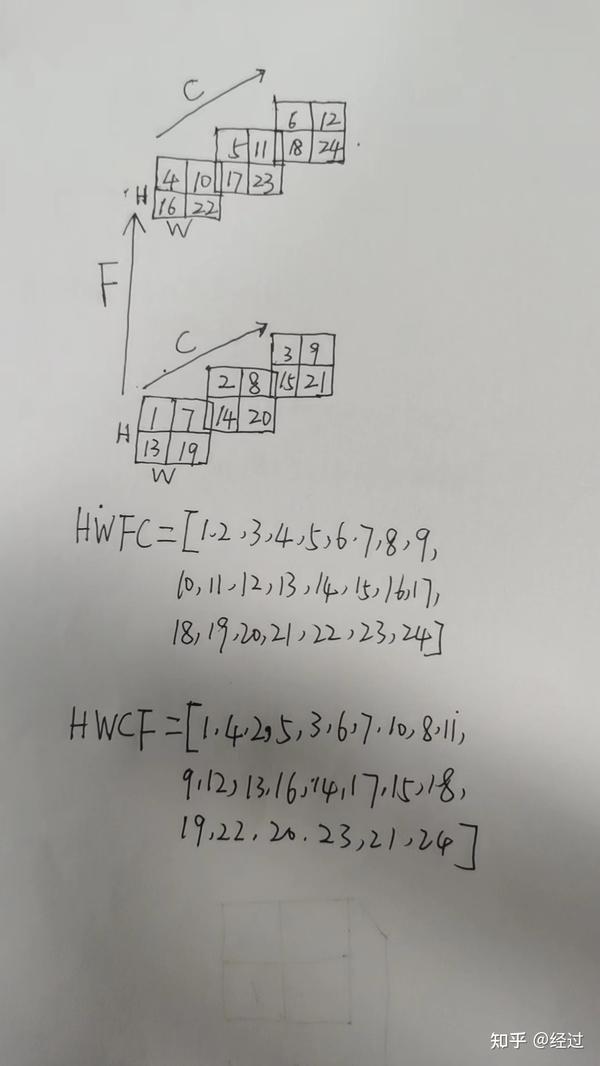 C
6 12
5 11 18 24
4 10 17 23
H 16 22
W
F
C
3 9
2 8 15 21
1 7 14 20
H 13 19
W
HWFC=[1.2,3,4,5,6.7,8,9,
10,11,12,13,14,15,16,17,
18,19,20,21,22,23,24]
HWCF=[1.4.2,5,3,6,7.10,8,11,
9,12,13.16,14,17,15,18,
19,22.20.23,21,24]
知乎 @经过